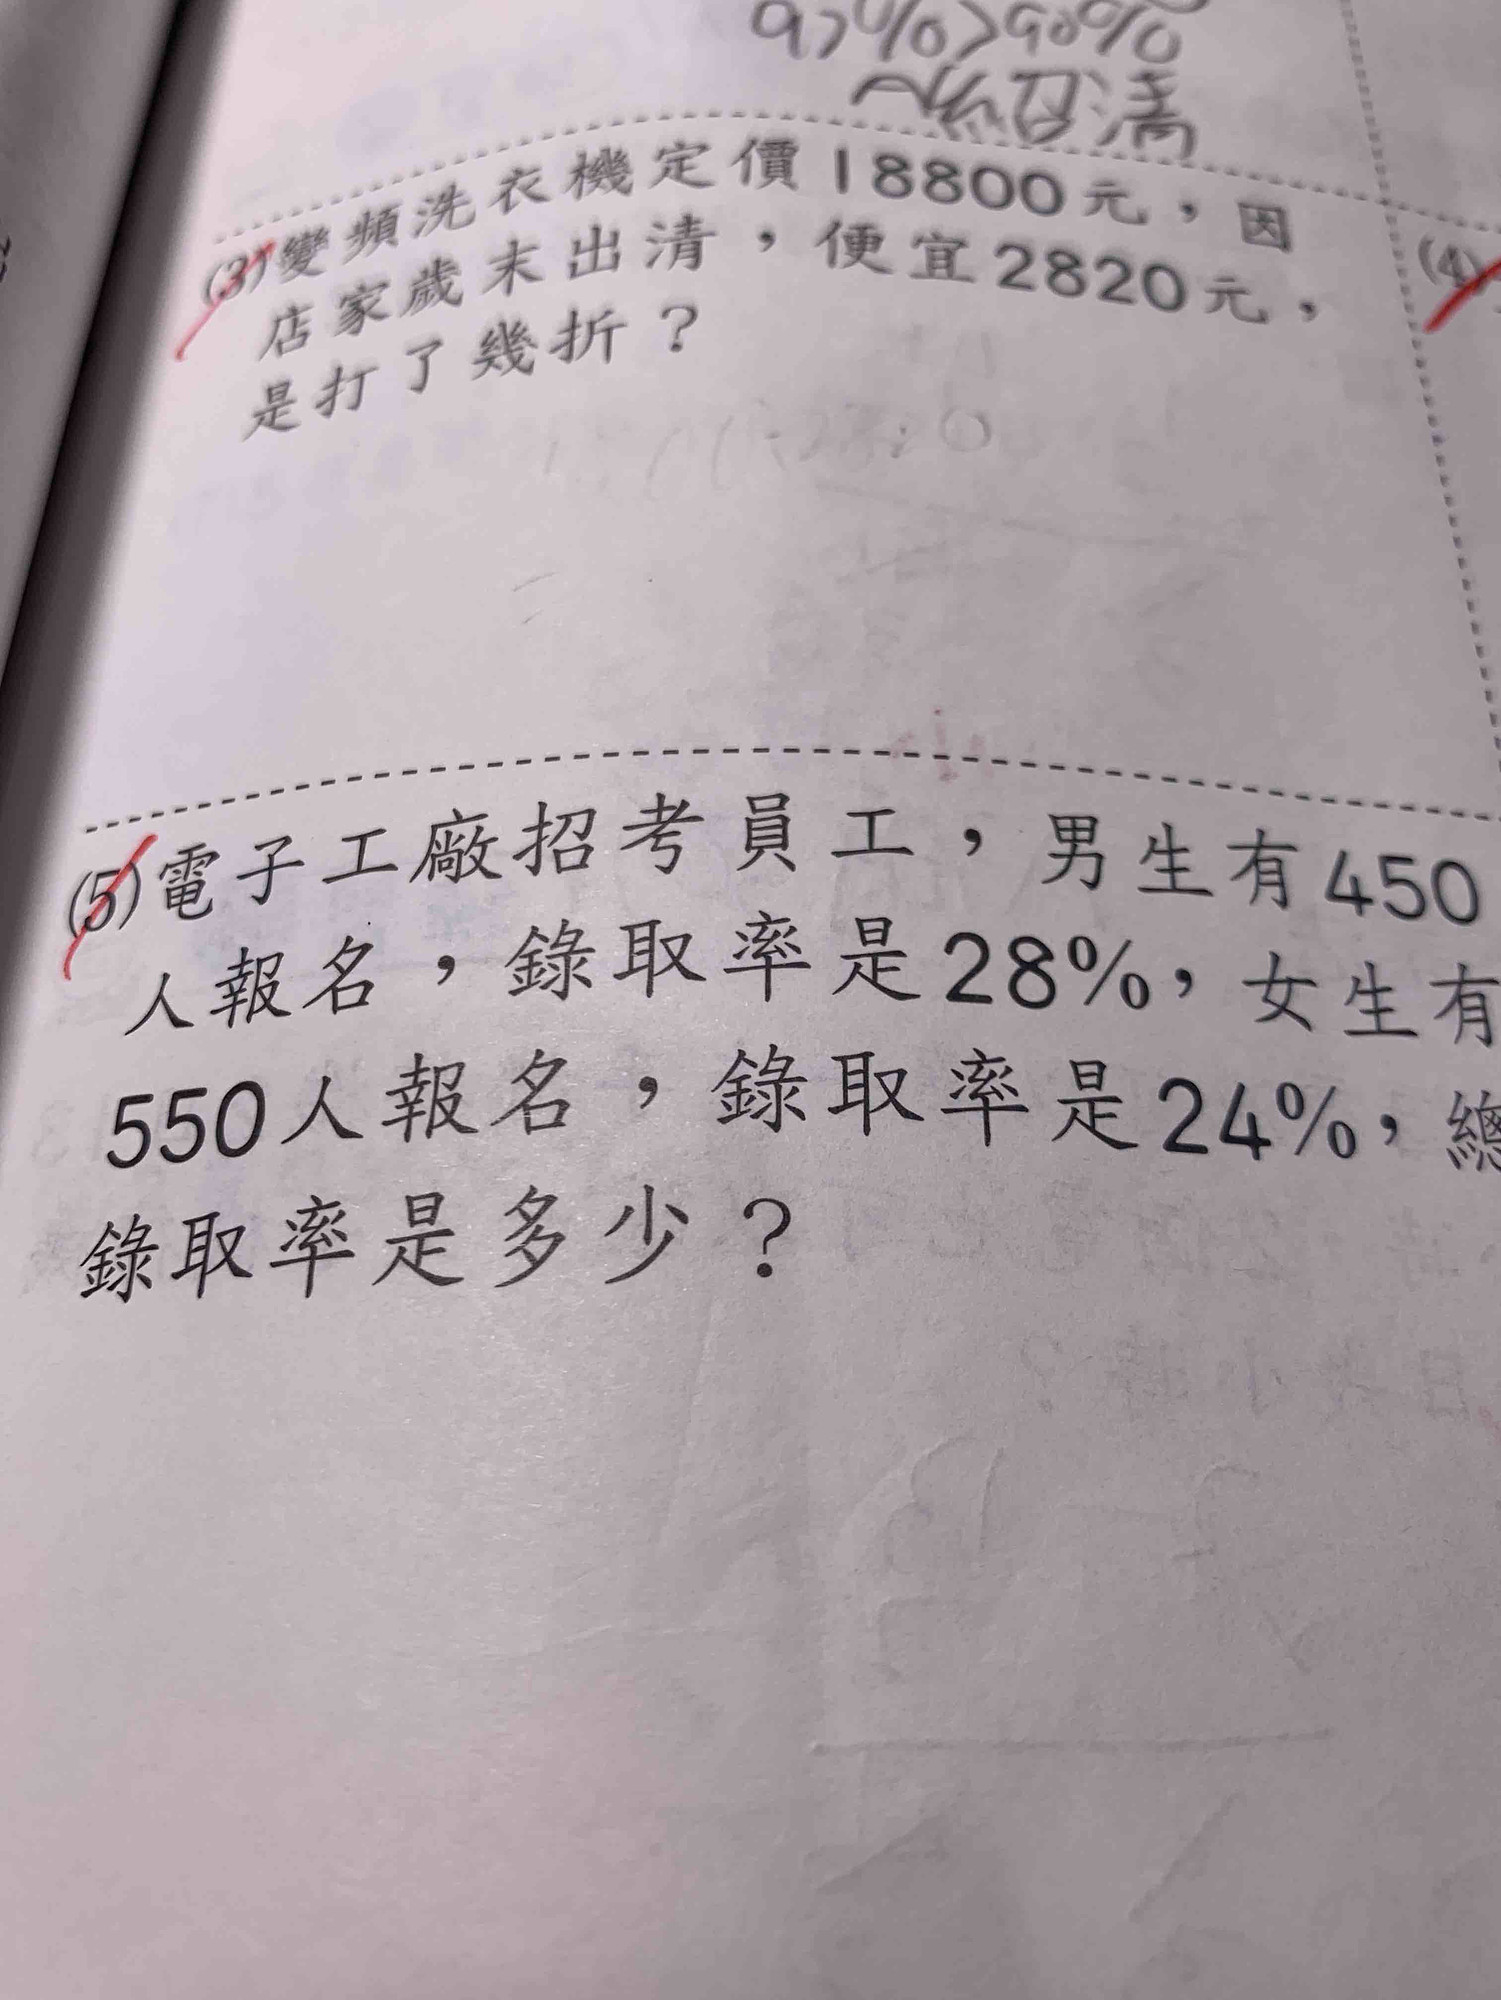 (3)變頻洗衣機定價18800元，因
店家歲末出清，便宜2820元，
是打了幾折？
(4)
(5)電子工廠招考員工，男生有450
人報名，錄取率是28%，女生有
550人報名，錄取率是24%，總
錄取率是多少？